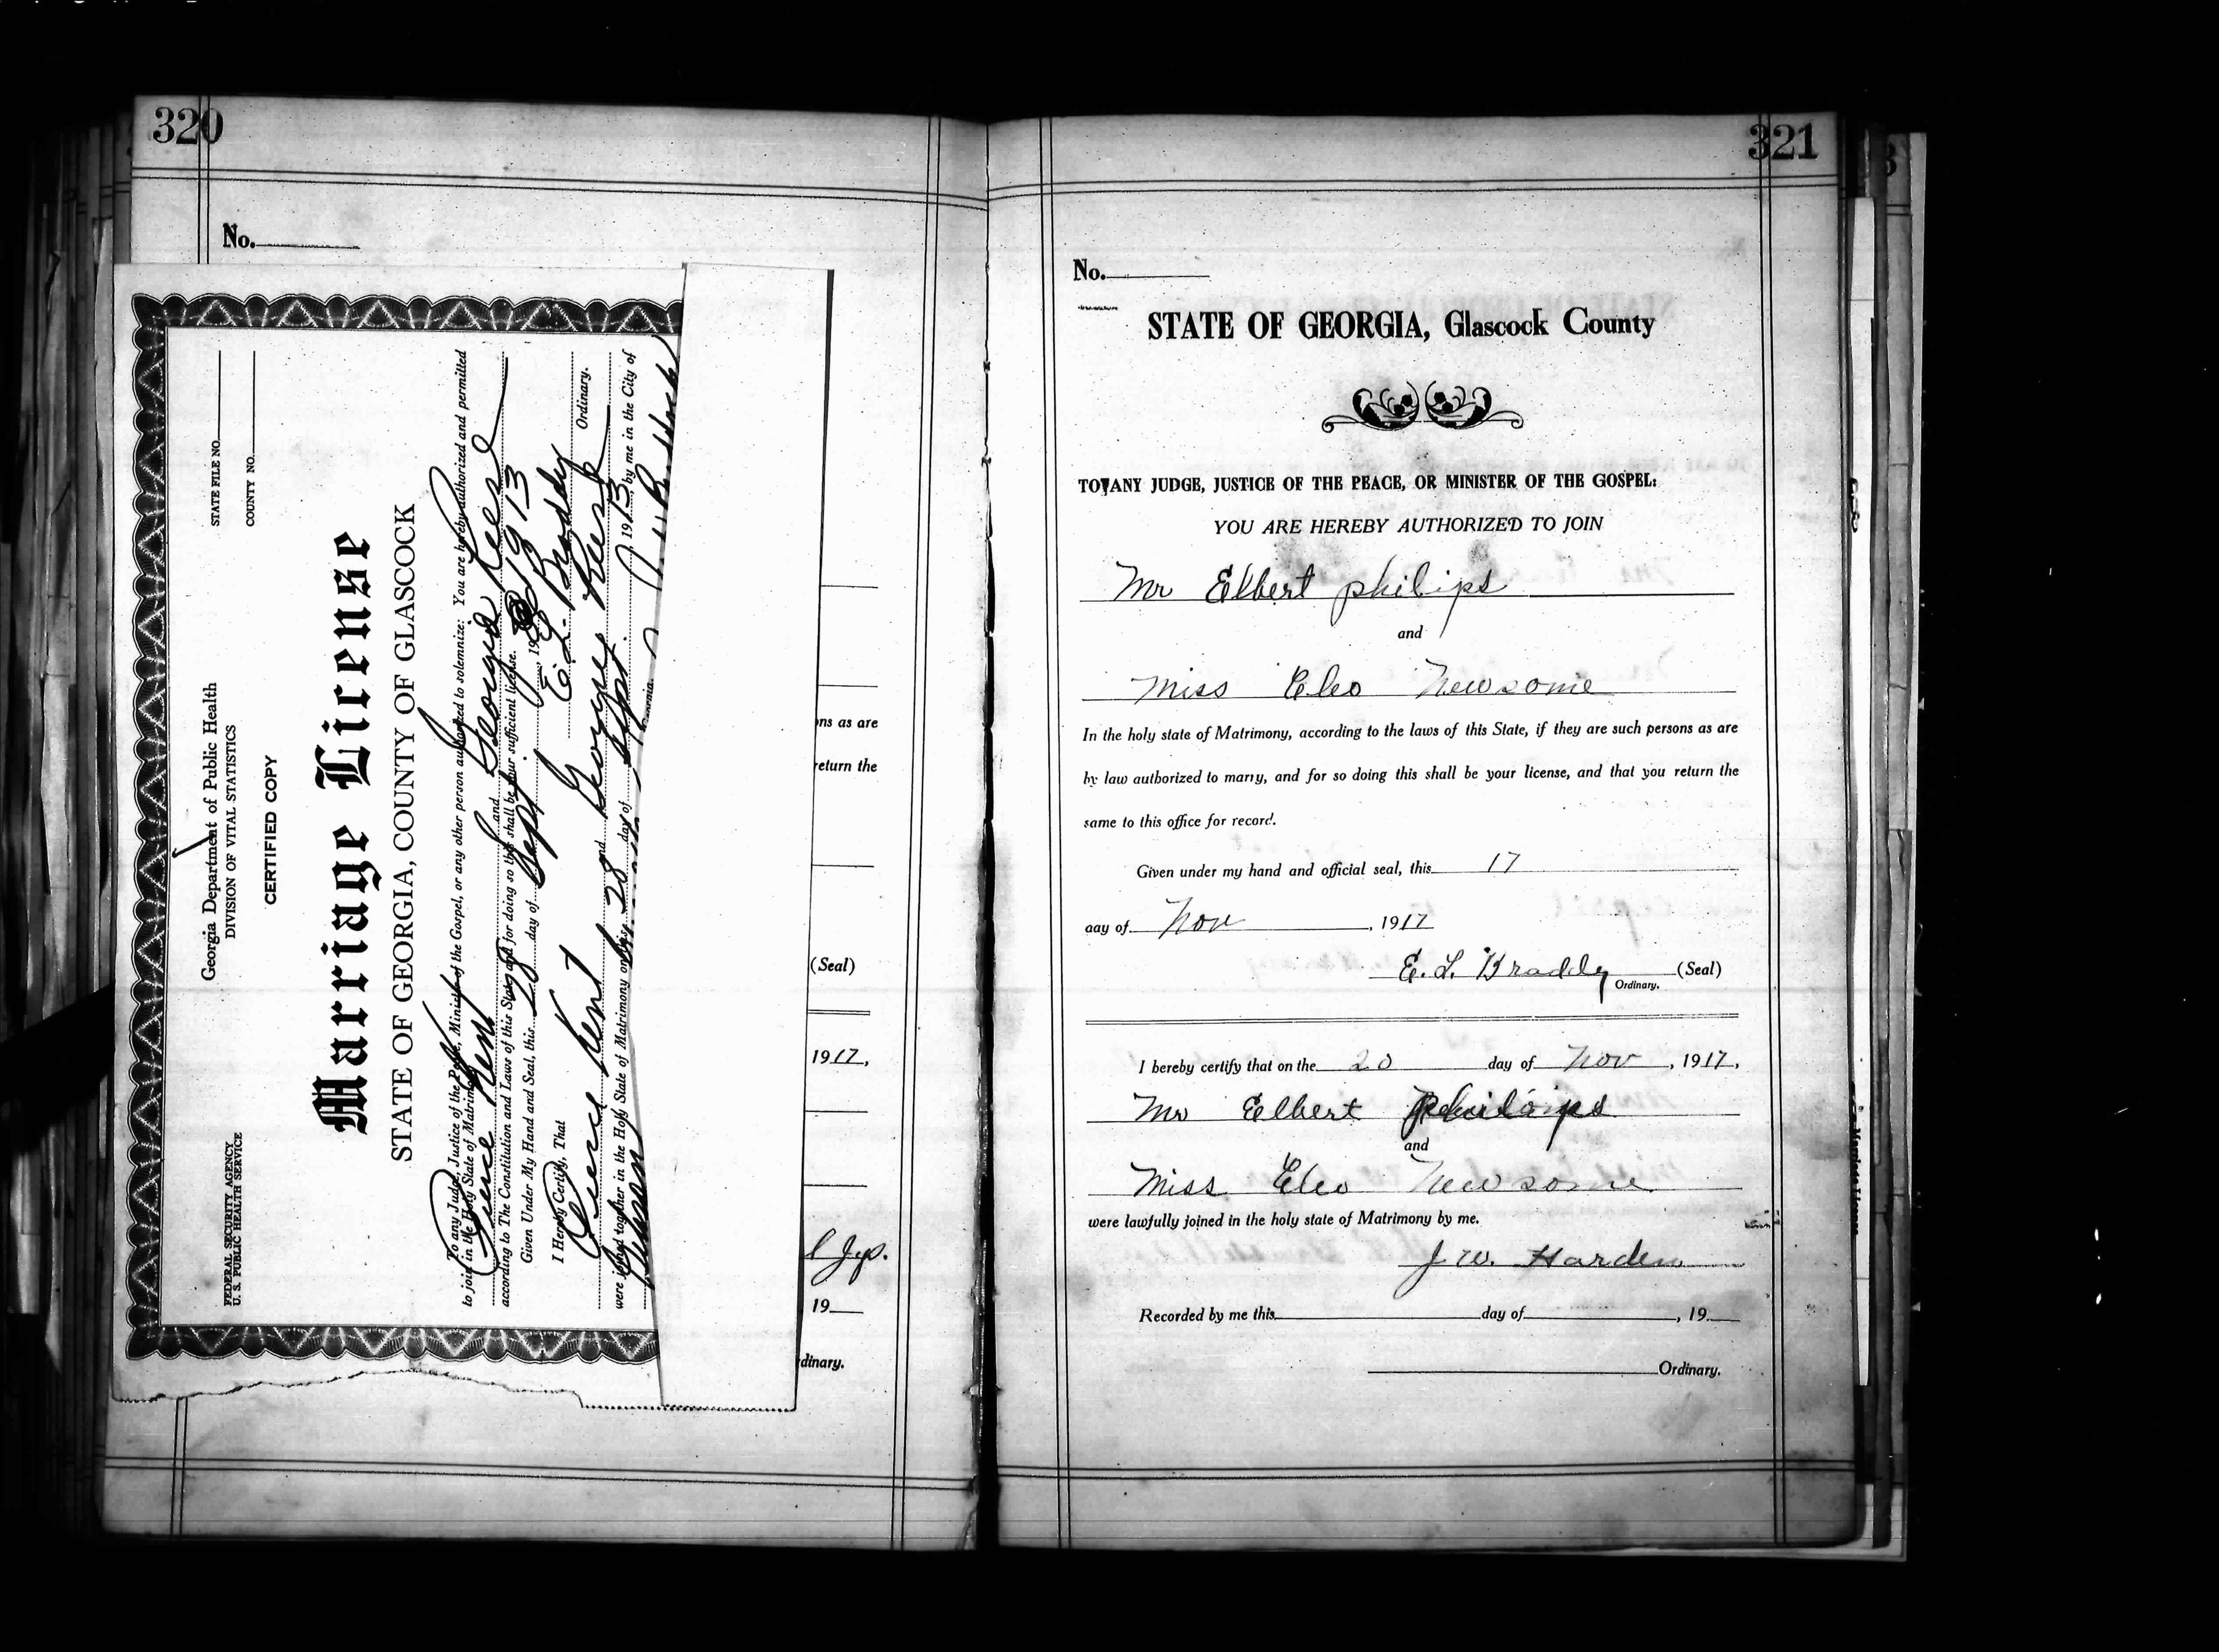 320
No.
Georgia Department of Public Health
DIVISION OF VITAL STATISTICS
CERTIFIED COPY
FEDERAL SECURITY AGENCY
U. S. PUBLIC HEALTH SERVICE
STATE FILE NO.
COUNTY NO.
Marriage License
STATE OF GEORGIA, COUNTY OF GLASCOCK
To any Judge, Justice of the Peace, Minister of the Gospel, or any other person authorized to solemnize: You are hereby authorized and permitted
to join in the Holy State of Matrimony
Kent and Georgia
according to The Constitution and Laws of this State, and for doing so this shall be your sufficient license.
Given Under My Hand and Seal, this 28 day of Sept, 19 1913
E. L. Braddy
Ordinary.
I Hereby Certify, That
Kent and
were joined together in the Holy State of Matrimony on this 28 day of Sept. 1913, by me in the City of
ons as are
return the
(Seal)
1917,
J.p.
19
dinary.
321
No.
STATE OF GEORGIA, Glascock County
TO ANY JUDGE, JUSTICE OF THE PEACE, OR MINISTER OF THE GOSPEL:
YOU ARE HEREBY AUTHORIZED TO JOIN
Mr Elbert philips
and
Miss Cleo Newsome
In the holy state of Matrimony, according to the laws of this State, if they are such persons as are
by law authorized to marry, and for so doing this shall be your license, and that you return the
same to this office for record.
Given under my hand and official seal, this 17
day of Nov, 1917
E. L. Braddy (Seal)
Ordinary.
I hereby certify that on the 20 day of Nov, 1917,
Mr Elbert Philips
and
Miss Cleo Newsome
were lawfully joined in the holy state of Matrimony by me.
J. W. Harden
Recorded by me this day of , 19
Ordinary.